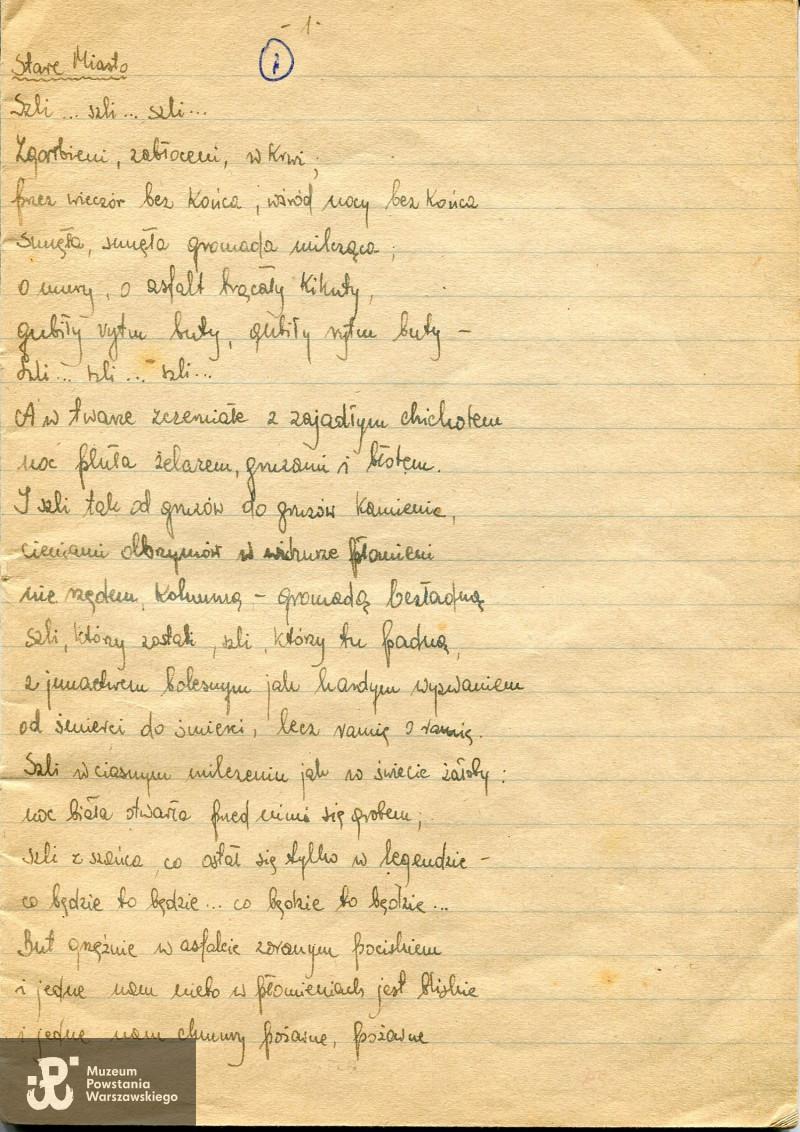 - 1 -
Stare Miasto
Szli ... szli ... szli ...
Zgarbieni, zabłoceni, w krwi,
przez wieczór bez końca, wśród nocy bez końca
sunęła, sunęła gromada milcząca;
o mury, o asfalt trącały kikuty,
gubiły rytm buty, gubiły rytm buty –
Szli ... szli ... szli ...
A w twarze sczerniałe z zajadłym chichotem
noc pluła żelazem, gruzami i błotem.
I szli tak od gruzów do gruzów kamienic,
cieniami olbrzymów w wichurze płomieni
nie rzędem, kolumną – gromadą bezładną
szli, którzy zostali, szli, którzy tu padną,
z junactwem bolesnym jak hardym wyzwaniem
od śmierci do śmierci, lecz ramię o ramię.
Szli w ciasnym milczeniu jak w święcie żałoby:
noc biała otwarła przed nimi się grobem;
szli z szańca, co ostał się tylko w legendzie –
co będzie to będzie ... co będzie to będzie ...
But grzęźnie w asfalcie zoranym pociskiem
i jedne nam niebo w płomieniach jest bliskie
i jedne nam chmury pożarne, pożarne
Muzeum
Powstania
Warszawskiego